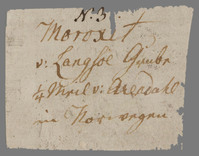 N: 3.
Moroxit
v: Langsöe Grube
1/4 Meil v: Arendahl
in Norwegen